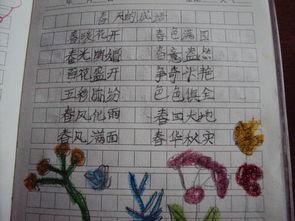 春天的成语
春暖花开 春色满园
春光明媚 春意盎然
百花盛开 争奇斗艳
五彩缤纷 色色俱全
春风化雨 春回大地
春风满面 春华秋实